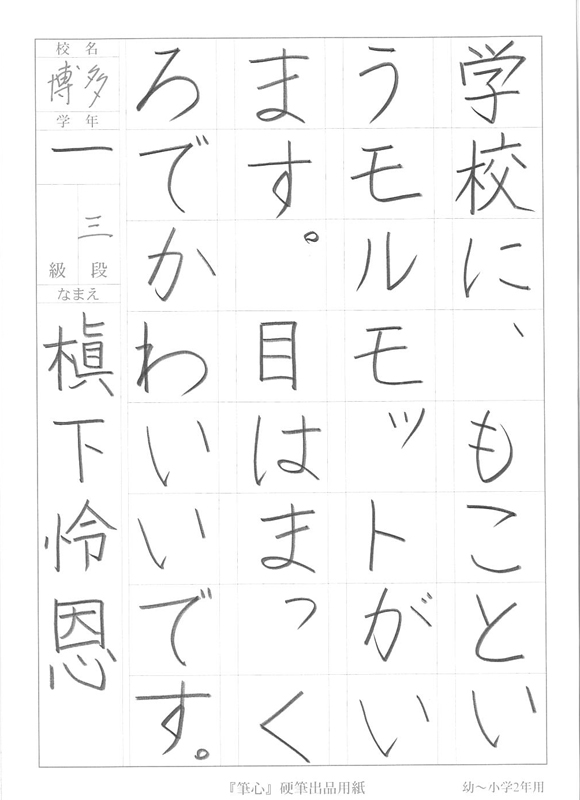 学校に、もこと
いうモルモットがい
ます。目はまっく
ろでかわいいです。
校名
博多
学年
一
三
級段
なまえ
槙下怜恩
『筆心』硬筆出品用紙
幼～小学2年用